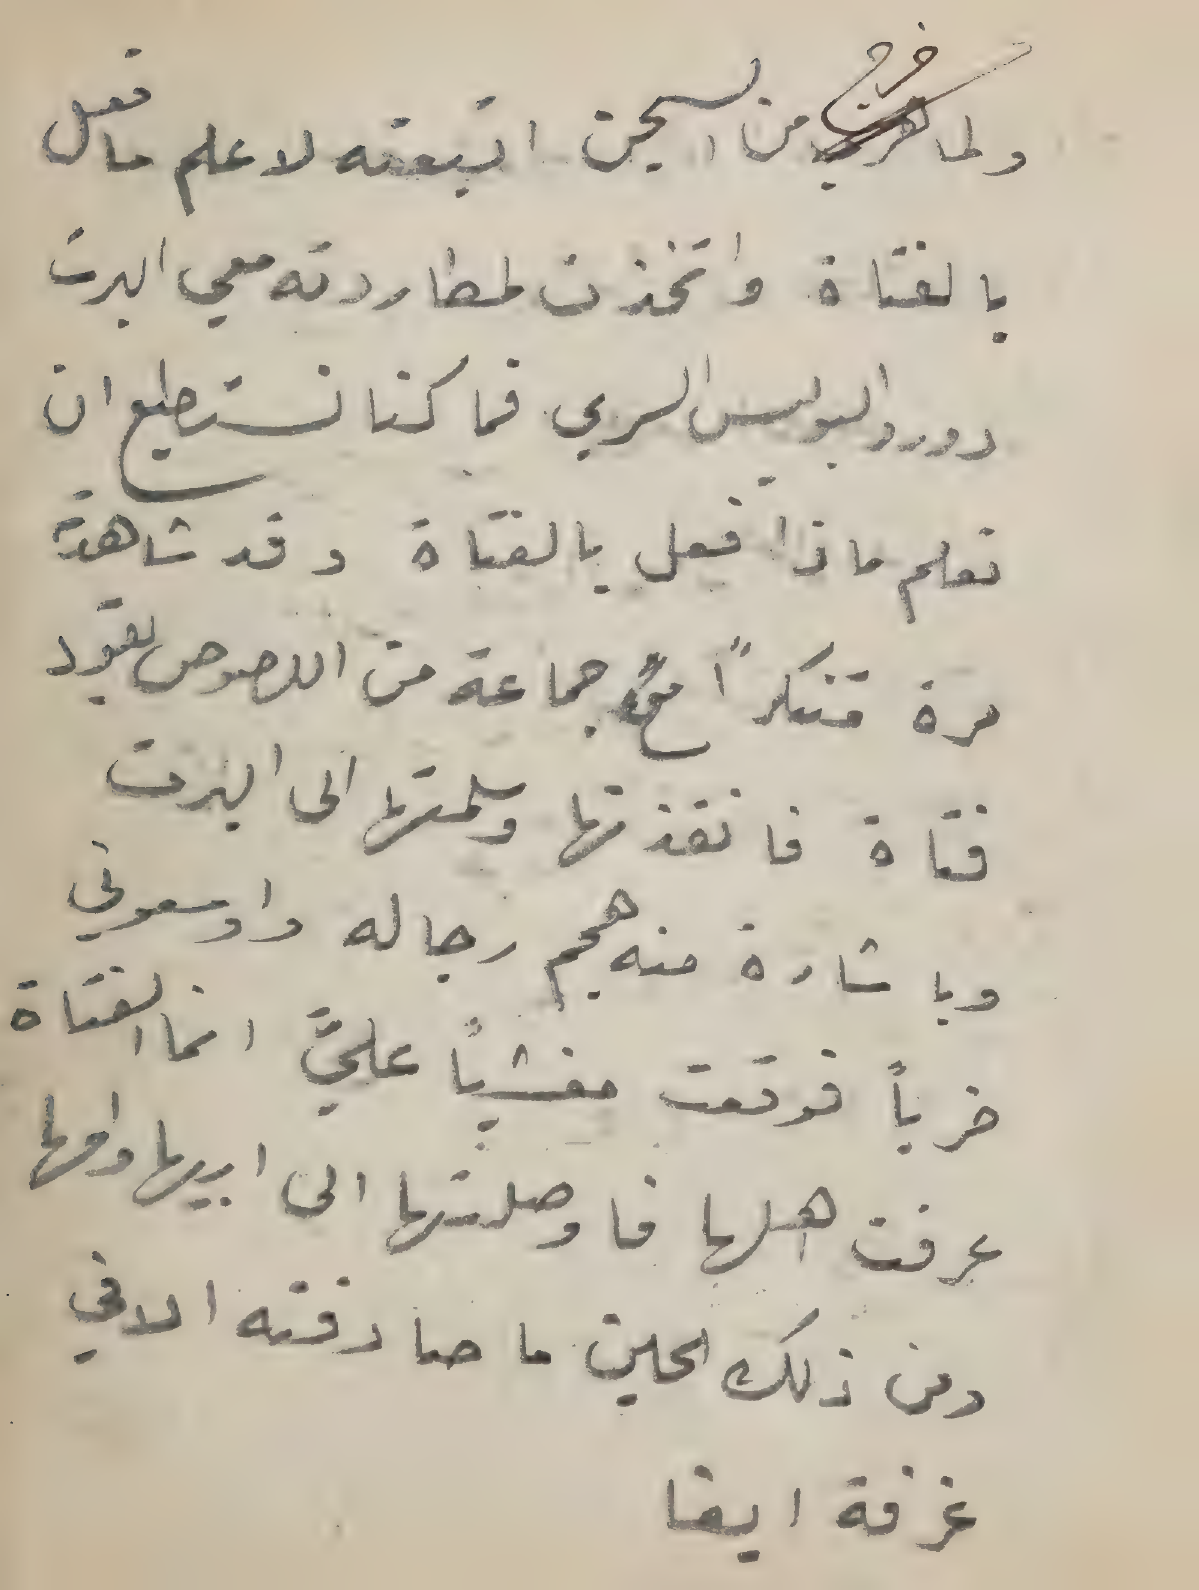 ولما خرج من السجن اتبعته لاعلم ما فعل
بالفتاة واتخذت لمطاردته معي البرت
دورو البوليس السري فما كنا نستطيع ان
نعلم ماذا فعل بالفتاة وقد شاهدته
مرة متنكراً مع جماعة من اللصوص يقود
فتاة فانقذتها وسلمتها الى البرت
وباشارة منه هجم رجاله واوسعوني
ضرباً فوقعت مغشياً عليَّ انما الفتاة
عرفت اهلها فاوصلتها الى ابيها وامها
ومن ذلك الحين ما صادفته الا في
غرفة ايفا